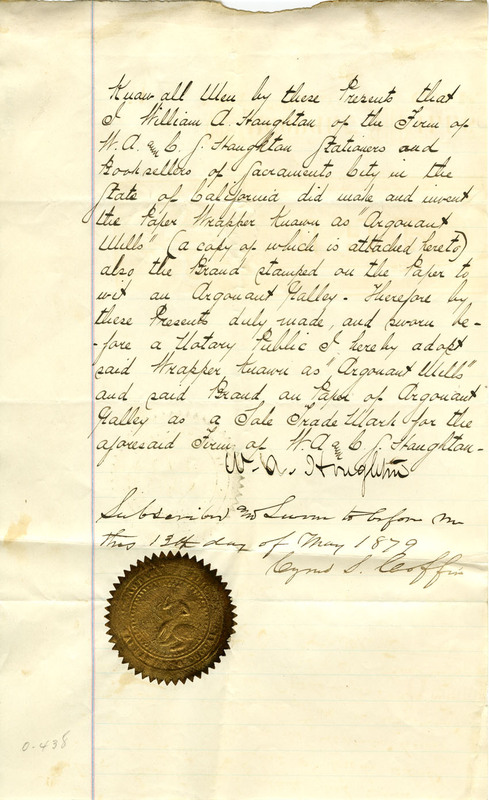 Know all Men by these Presents that
I William A. Houghton of the Firm of
W. A. and C. S. Houghton Stationers and
Booksellers of Sacramento City in the
State of California did make and invent
the Paper Wrapper Known as "Argonaut
Mills" (a copy of which is attached hereto)
also the Brand stamped on the Paper to
wit an Argonaut Galley - Therefore by
these Presents duly made, and sworn be-
-fore a Notary Public I hereby adopt
said Wrapper Known as "Argonaut Mills"
and said Brand, on Paper of Argonaut
Galley as a Sole Trade Mark for the
aforesaid Firm of W. A. and C. S. Houghton -
W. A. Houghton
Subscribed and Sworn to before me
this 13th day of May 1879
Cyrus S. Coffin
0-438